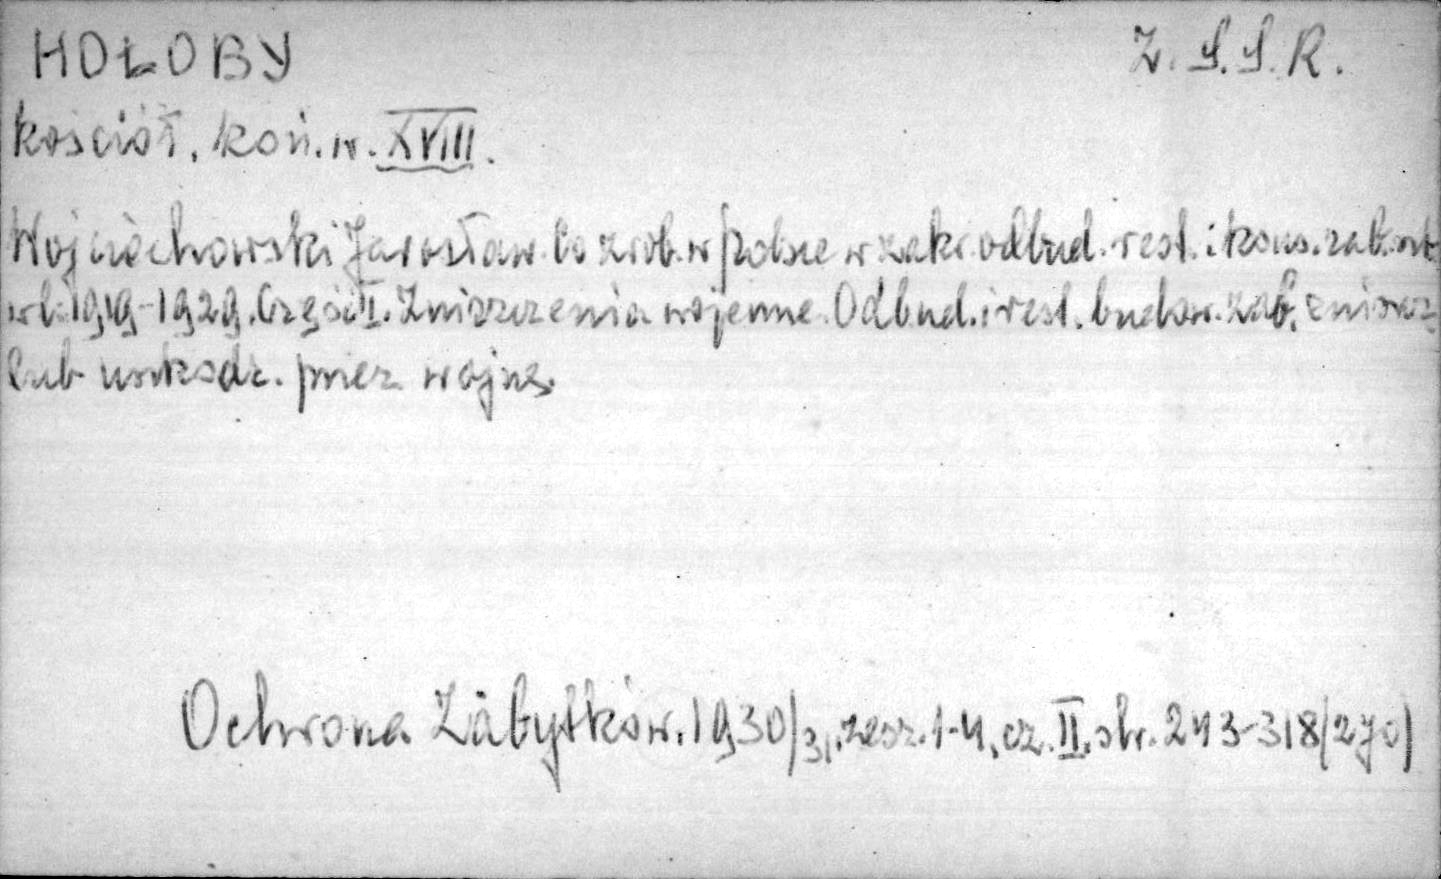 HOŁOBY Z.S.S.R.
Kościół, koń. w. XVIII.
Wojciechowski Jarosław. Co zrob. w Polsce w zakr. odbud. rest. i kons. zab. szt.
w l. 1919-1929. Część I. Zniszczenia wojenne. Odbud. i rest. budow. zab. zniszcz.
lub uszkodz. przez wojnę.
Ochrona Zabytków. 1930/31, zesz. 1-4, cz. II, str. 243-318/270/